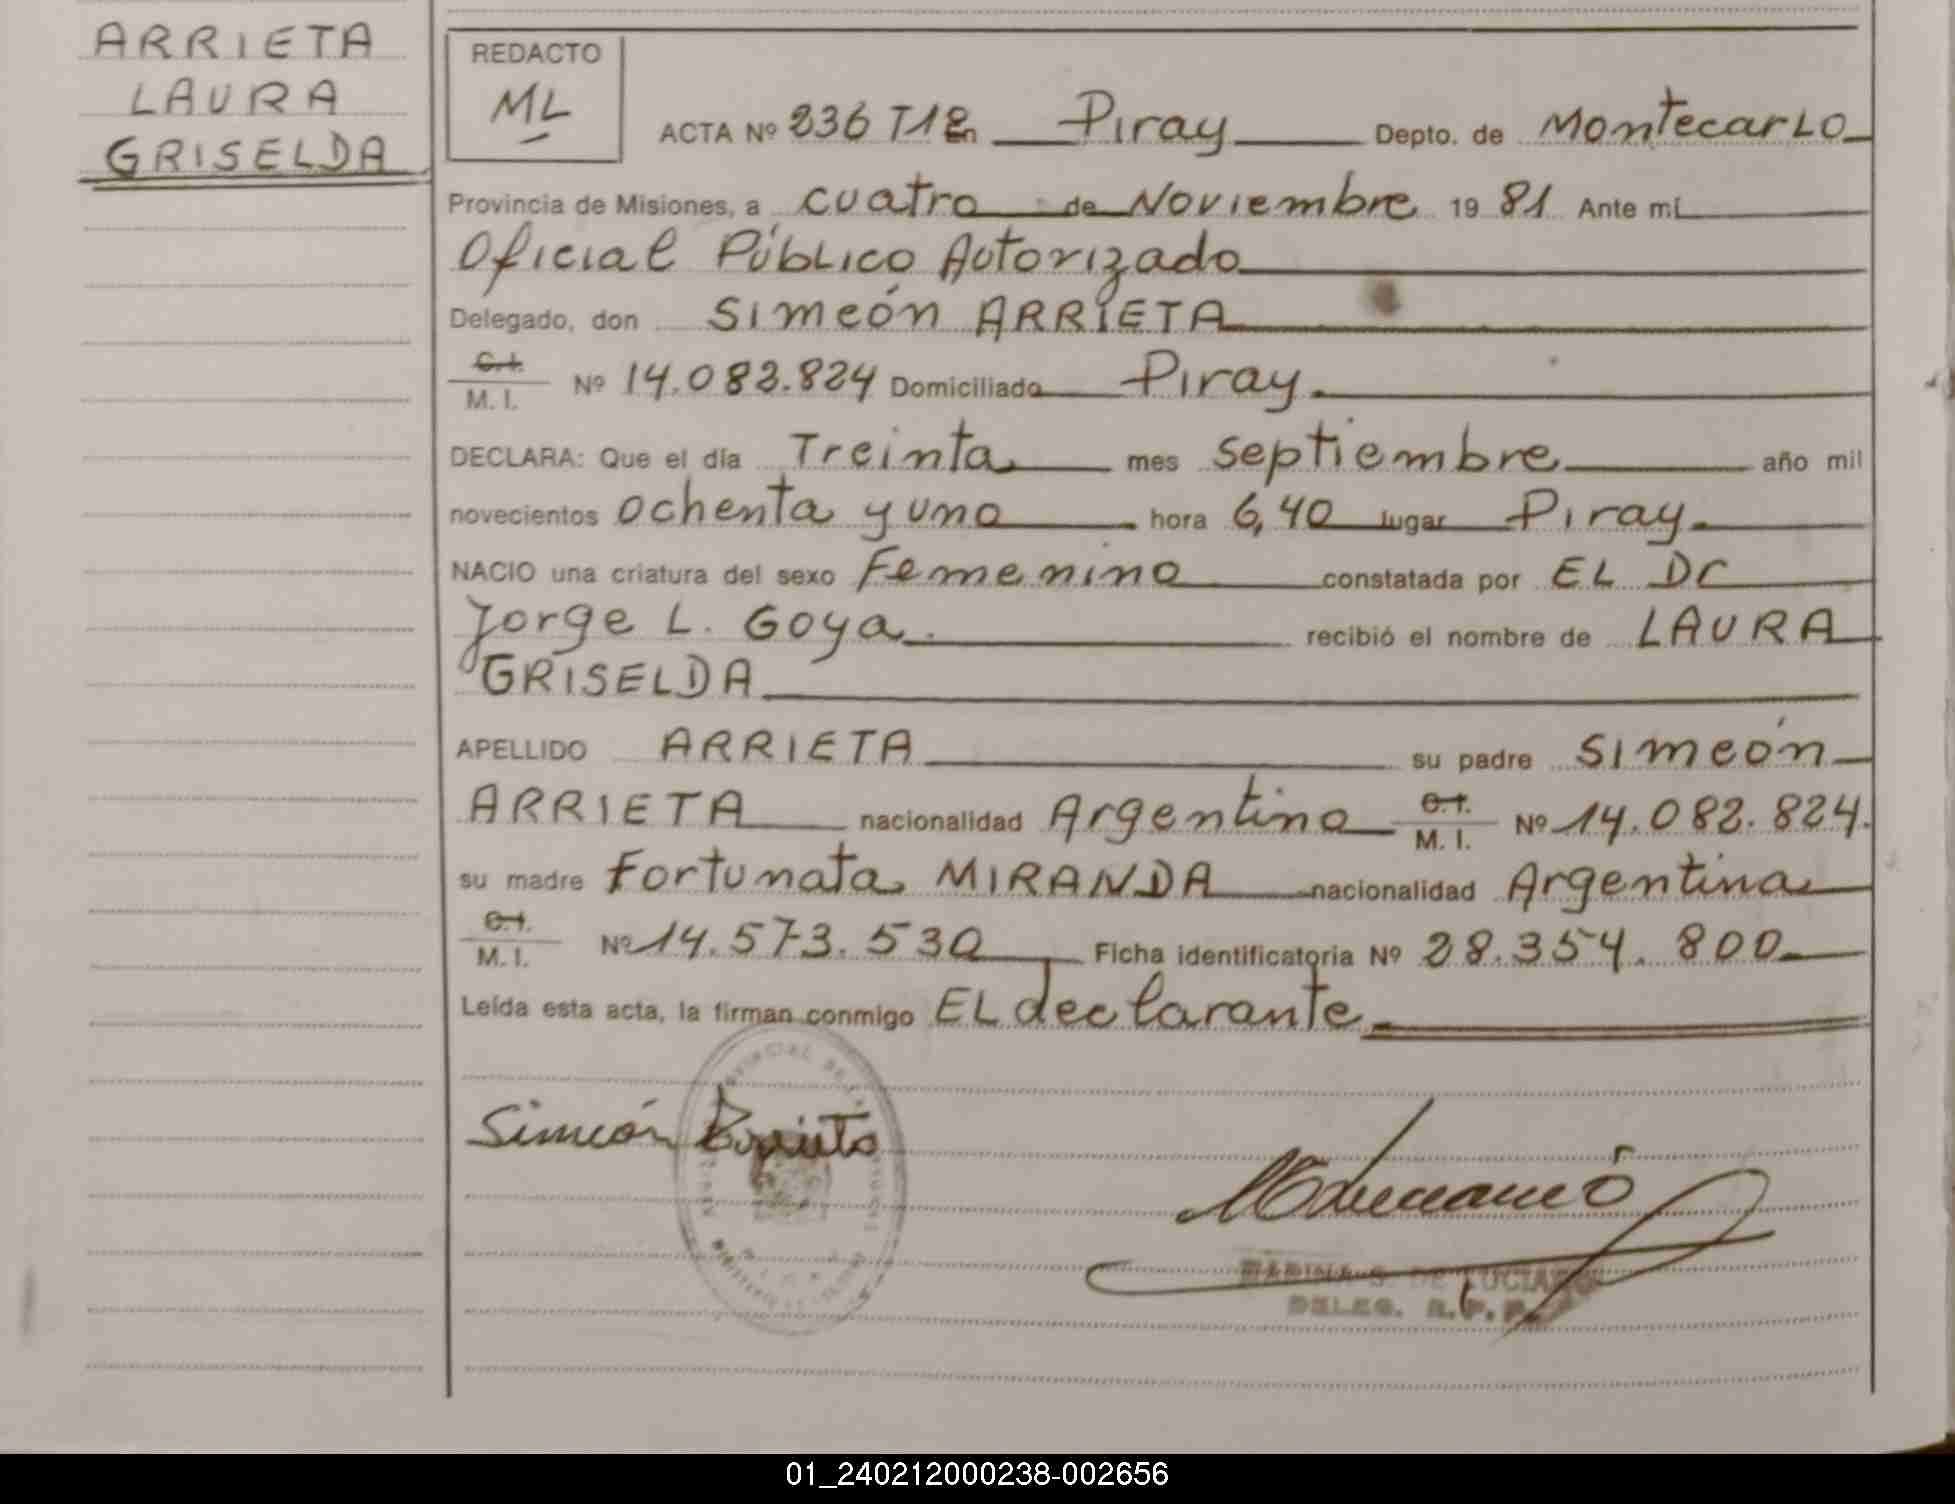 ARRIETA
LAURA
GRISELDA
REDACTO
ML
ACTA Nº 236 T1º En Piray Depto. de Montecarlo
Provincia de Misiones, a cuatro de Noviembre 19 81 Ante mí
Oficial Público Autorizado
Delegado, don Simeón ARRIETA
C.I.
M. I. Nº 14.082.824 Domiciliado Piray
DECLARA: Que el día Treinta mes septiembre año mil
novecientos ochenta y uno hora 6,40 lugar Piray
NACIO una criatura del sexo Femenino constatada por EL Dr
Jorge L. Goya recibió el nombre de LAURA
GRISELDA
APELLIDO ARRIETA su padre Simeón
ARRIETA nacionalidad Argentino C.I. M. I. Nº 14.082.824.
su madre Fortunata MIRANDA nacionalidad Argentina
C.I.
M. I. Nº 14.573.530 Ficha identificatoria Nº 28.354.800
Leída esta acta, la firman conmigo EL declarante
Simeón Arrieta
MARINA S. DE LUCIANO
DELEG. R.P.P.
01_240212000238-002656